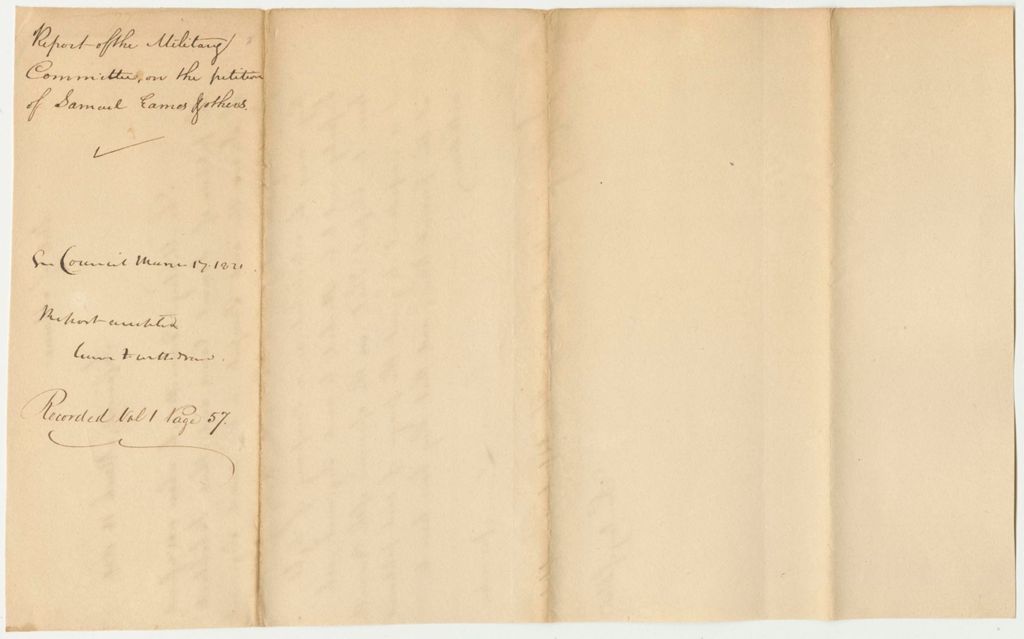 Report of the Military
Committee, on the petition
of Samuel Eames & others.
In Council March 17. 1821.
Report accepted
leave to withdraw.
Recorded Vol 1 Page 57.